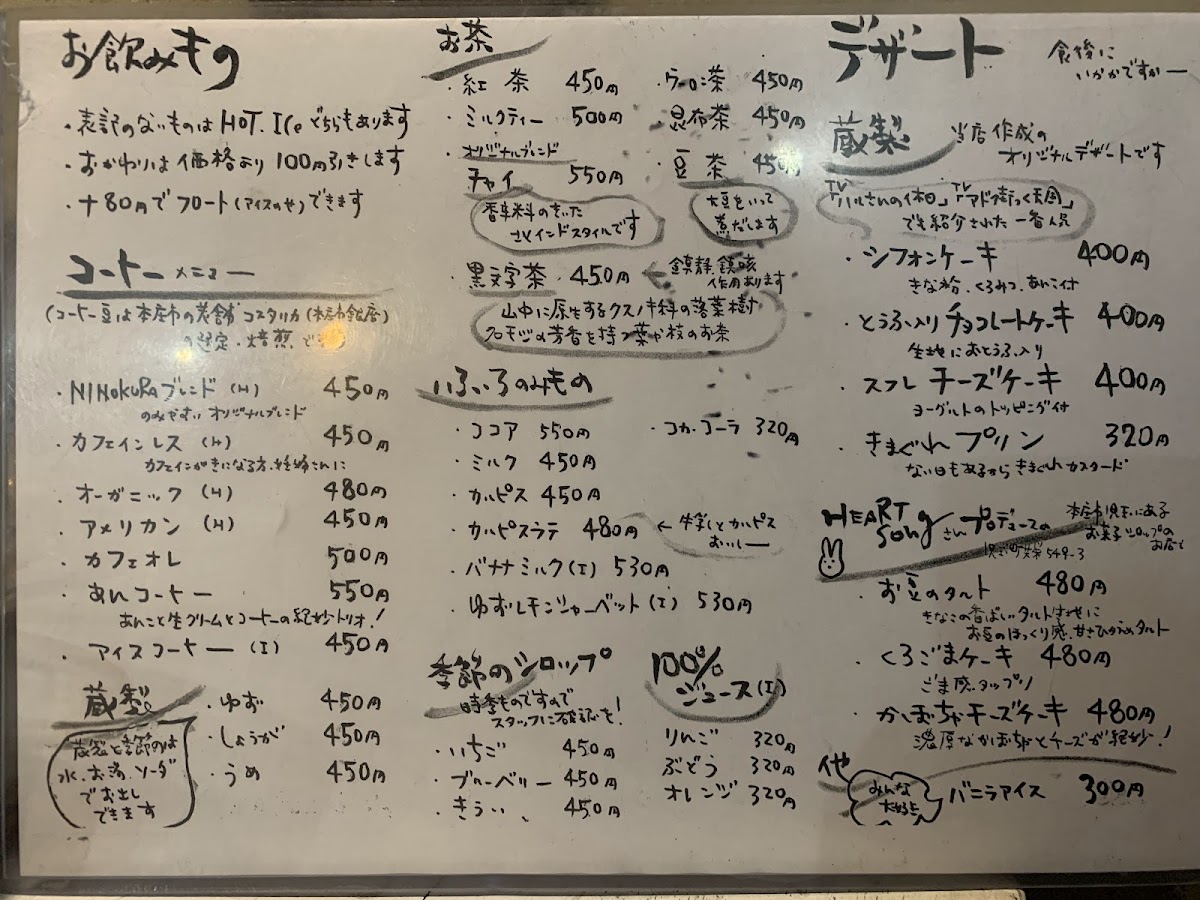 お飲みもの
・表記のないものは HOT. Ice どちらもあります
・おかわりは価格より 100円引きします
・+80円でフロート(アイスのせ)できます
コーヒーメニュー
(コーヒー豆は本庄市の老舗 コスタリカ (本庄市飯店)
の選定・焙煎です
・NINOKURAブレンド (H) 450円
のみやすい オリジナルブレンド
・カフェインレス (H) 450円
カフェインがきになる方、妊婦さんに
・オーガニック (H) 480円
・アメリカン (H) 450円
・カフェオレ 500円
・あんコーヒー 550円
あんこと生クリームとコーヒーの絶妙トリオ!
・アイスコーヒー (I) 450円
蔵製
蔵製と季節のは
水、お湯、ソーダ
でお出し
できます
・ゆず 450円
・しょうが 450円
・うめ 450円
お茶
・紅茶 450円
・ミルクティー 500円
・オリジナルブレンド
チャイ 550円
香辛料のきいた
さくインドスタイルです
・ウーロン茶 450円
・昆布茶 450円
・豆茶 450円
大豆をいって
煮だします
・黒文字茶 450円
← 鎮静、鎮咳
作用あります
山中に原生するクスノキ科の落葉樹
クロモジの芳香を持つ葉や枝のお茶
いろいろのみもの
・ココア 550円
・ミルク 450円
・カルピス 450円
・カルピスラテ 480円
← 牛乳とカルピス
おいしー
・バナナミルク (I) 530円
・ゆずレモンシャーベット (I) 530円
・コカ・コーラ 320円
季節のシロップ
時季ものですので
スタッフに確認を!
・いちご 450円
・ブルーベリー 450円
・きうい 450円
100%
ジュース(I)
りんご 320円
ぶどう 320円
オレンジ 320円
デザート
食後に
いかがですかー
蔵製
当店作成の
オリジナルデザートです
TV「ハルさんの休日」TV「アド街ック天国」
でも紹介された一番人気
・シフォンケーキ 400円
きな粉、くろみつ、あんこ付
・とうふ入りチョコレートケーキ 400円
生地におとうふ入り
・スフレ チーズケーキ 400円
ヨーグルトのトッピング付
・きまぐれプリン 320円
ない日もあるからきまぐれカスタード
HEART Songさんプロデュースの
本庄市児玉にある
お菓子シロップの
お店
549-3
・お豆のタルト 480円
きなこの香ばしいタルトきせに
お豆のほっくり感、甘さひかえめタルト
・くろごまケーキ 480円
ごま感タップリ
・かぼちゃチーズケーキ 480円
濃厚なかぼちゃとチーズが絶妙!
他
みんな
大好き
バニラアイス 300円